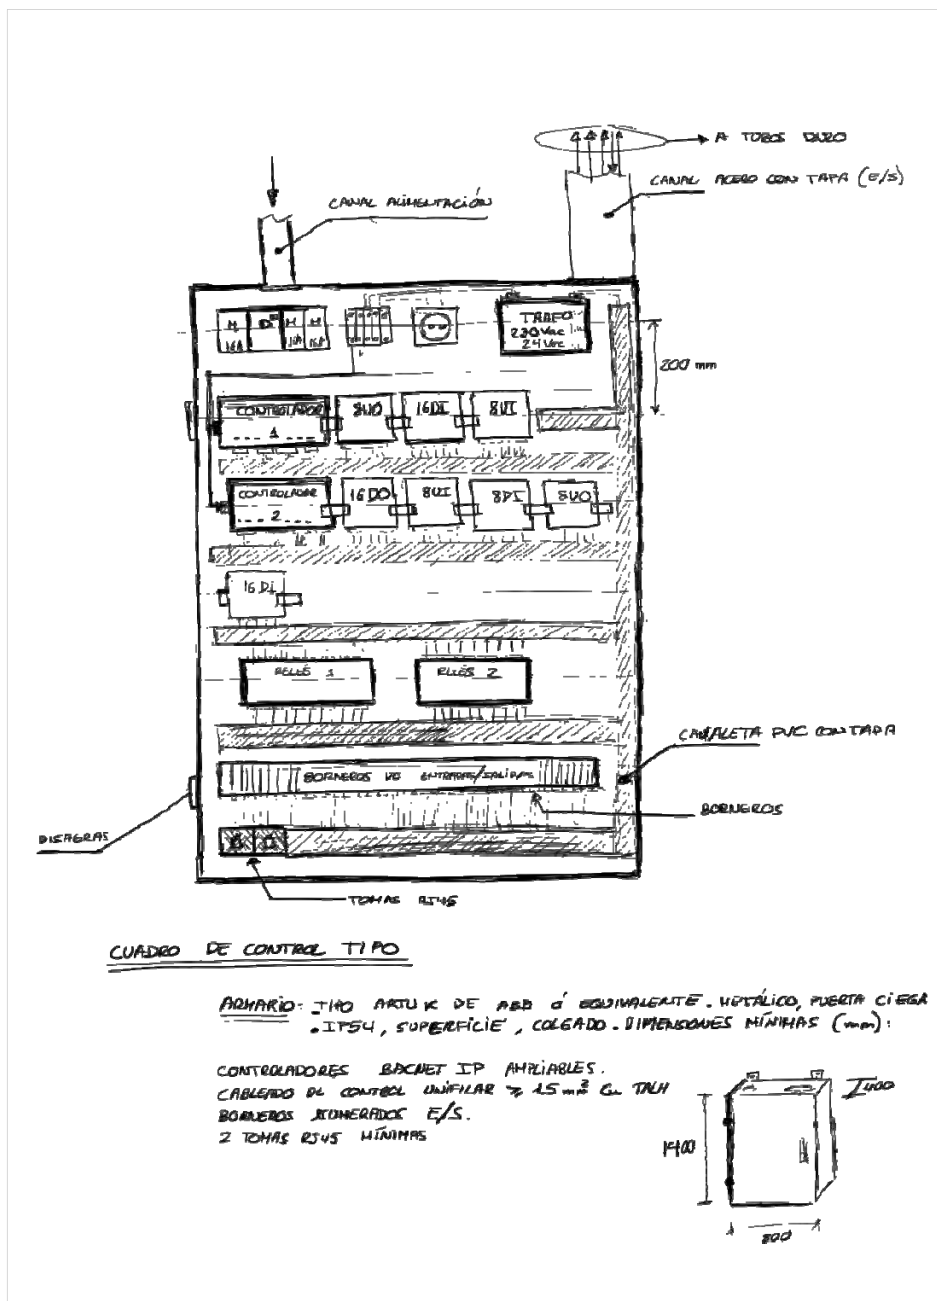 A TUBOS DURO
CANAL ACERO CON TAPA (E/S)
CANAL ALIMENTACIÓN
M
16A
M
16A
M
16A
TRAFO
230Vac
24Vac
200 mm
CONTROLADOR
1
8UO
16DI
8UI
CONTROLADOR
2
16DO
8UI
8DI
8UO
16Di
RELÉS 1
RELÉS 2
CANALETA PVC CON TAPA
BORNEROS DE ENTRADAS/SALIDAS
BORNEROS
BISAGRAS
TOMAS RJ45
CUADRO DE CONTROL TIPO
ARMARIO: TIPO ARTU K DE ABB Ó EQUIVALENTE. METÁLICO, PUERTA CIEGA
.IP54, SUPERFICIE, COLGADO. DIMENSIONES MÍNIMAS (mm):
CONTROLADORES BACNET IP AMPLIABLES.
CABLEADO DE CONTROL UNIFILAR ≥ 1.5 mm² Cu
BORNEROS NUMERADOS E/S.
2 TOMAS RJ45 MÍNIMAS
400
1400
800